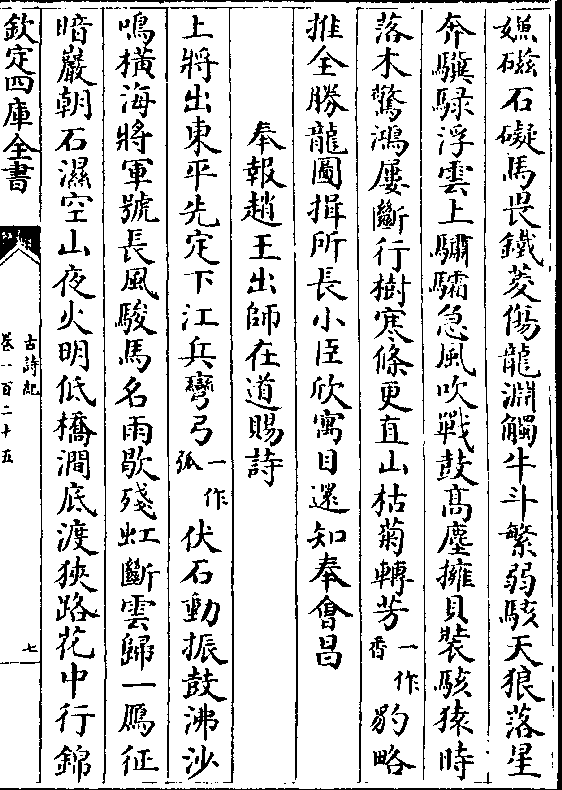 嫌磁石礙馬畏鐵菱傷龍淵觸牛斗繁弱駭天狼落星
奔驥騄浮雲上驌驦急風吹戰鼓髙塵擁貝裝駭猿時
落木驚鴻屢斷行樹寒條更直山枯菊轉芳一作香豹略
推全勝龍圖揖所長小臣欣寓目還知奉會昌
奉報趙王出師在道賜詩
上將出東平先定下江兵彎弓一作弧伏石動振鼓沸沙
鳴橫海將軍號長風駿馬名雨歇殘虹斷雲歸一鴈征
暗巖朝石濕空山夜火明低橋澗底渡狹路花中行錦
欽定四庫全書
古詩紀
卷一百二十五
七